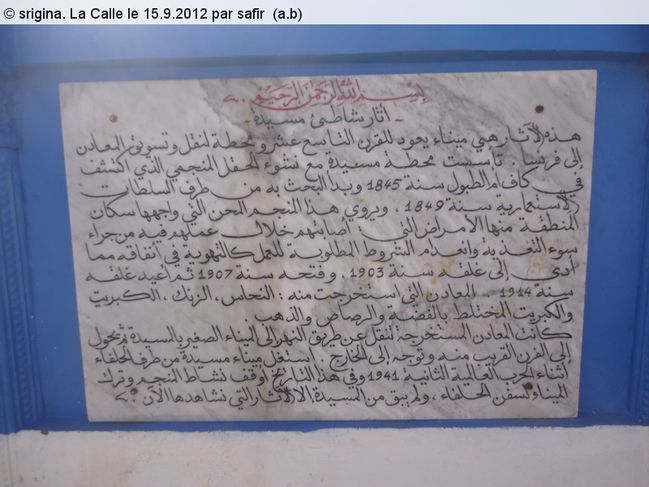 © srigina. La Calle le 15.9.2012 par safir (a.b)
بسم الله الرحمن الرحيم
- آثار شاطئ مسيدة -
هذه الآثار هي ميناء يعود للقرن التاسع عشر ومحطة لنقل وتسويق المعادن
إلى فرنسا. تأسست محطة مسيدة مع نشوء الحقل المنجمي الذي اكتشف
في كاف أم الطبول سنة 1845 وبدأ البحث به من طرف السلطات
الاستعمارية سنة 1849. ويروي هذا المنجم المحن التي واجهها سكان
المنطقة منها الأمراض التي أصابتهم خلال عملهم فيه من جراء
سوء التغذية وانعدام الشروط المطلوبة للعمل كالتهوية في أنفاقه مما
أدى إلى غلقه سنة 1903. وفتحه سنة 1907 ثم أعيد غلقه
سنة 1914. المعادن التي استخرجت منه: النحاس، الزنك، الكبريت
والكبريت المختلط بالفضة والرصاص والذهب
كانت المعادن المستخرجة تنقل عن طريق النهر إلى الميناء الصغير بالمسيدة ثم تحول
إلى الفرن القريب منه وتوجه إلى الخارج. استغل ميناء مسيدة من طرف الحلفاء
أثناء الحرب العالمية الثانية 1941 وفي هذا التاريخ أوقف نشاط المنجم وترك
الميناء لسفن الحلفاء، ولم يبق من المسيدة إلا الآثار التي نشاهدها الآن.